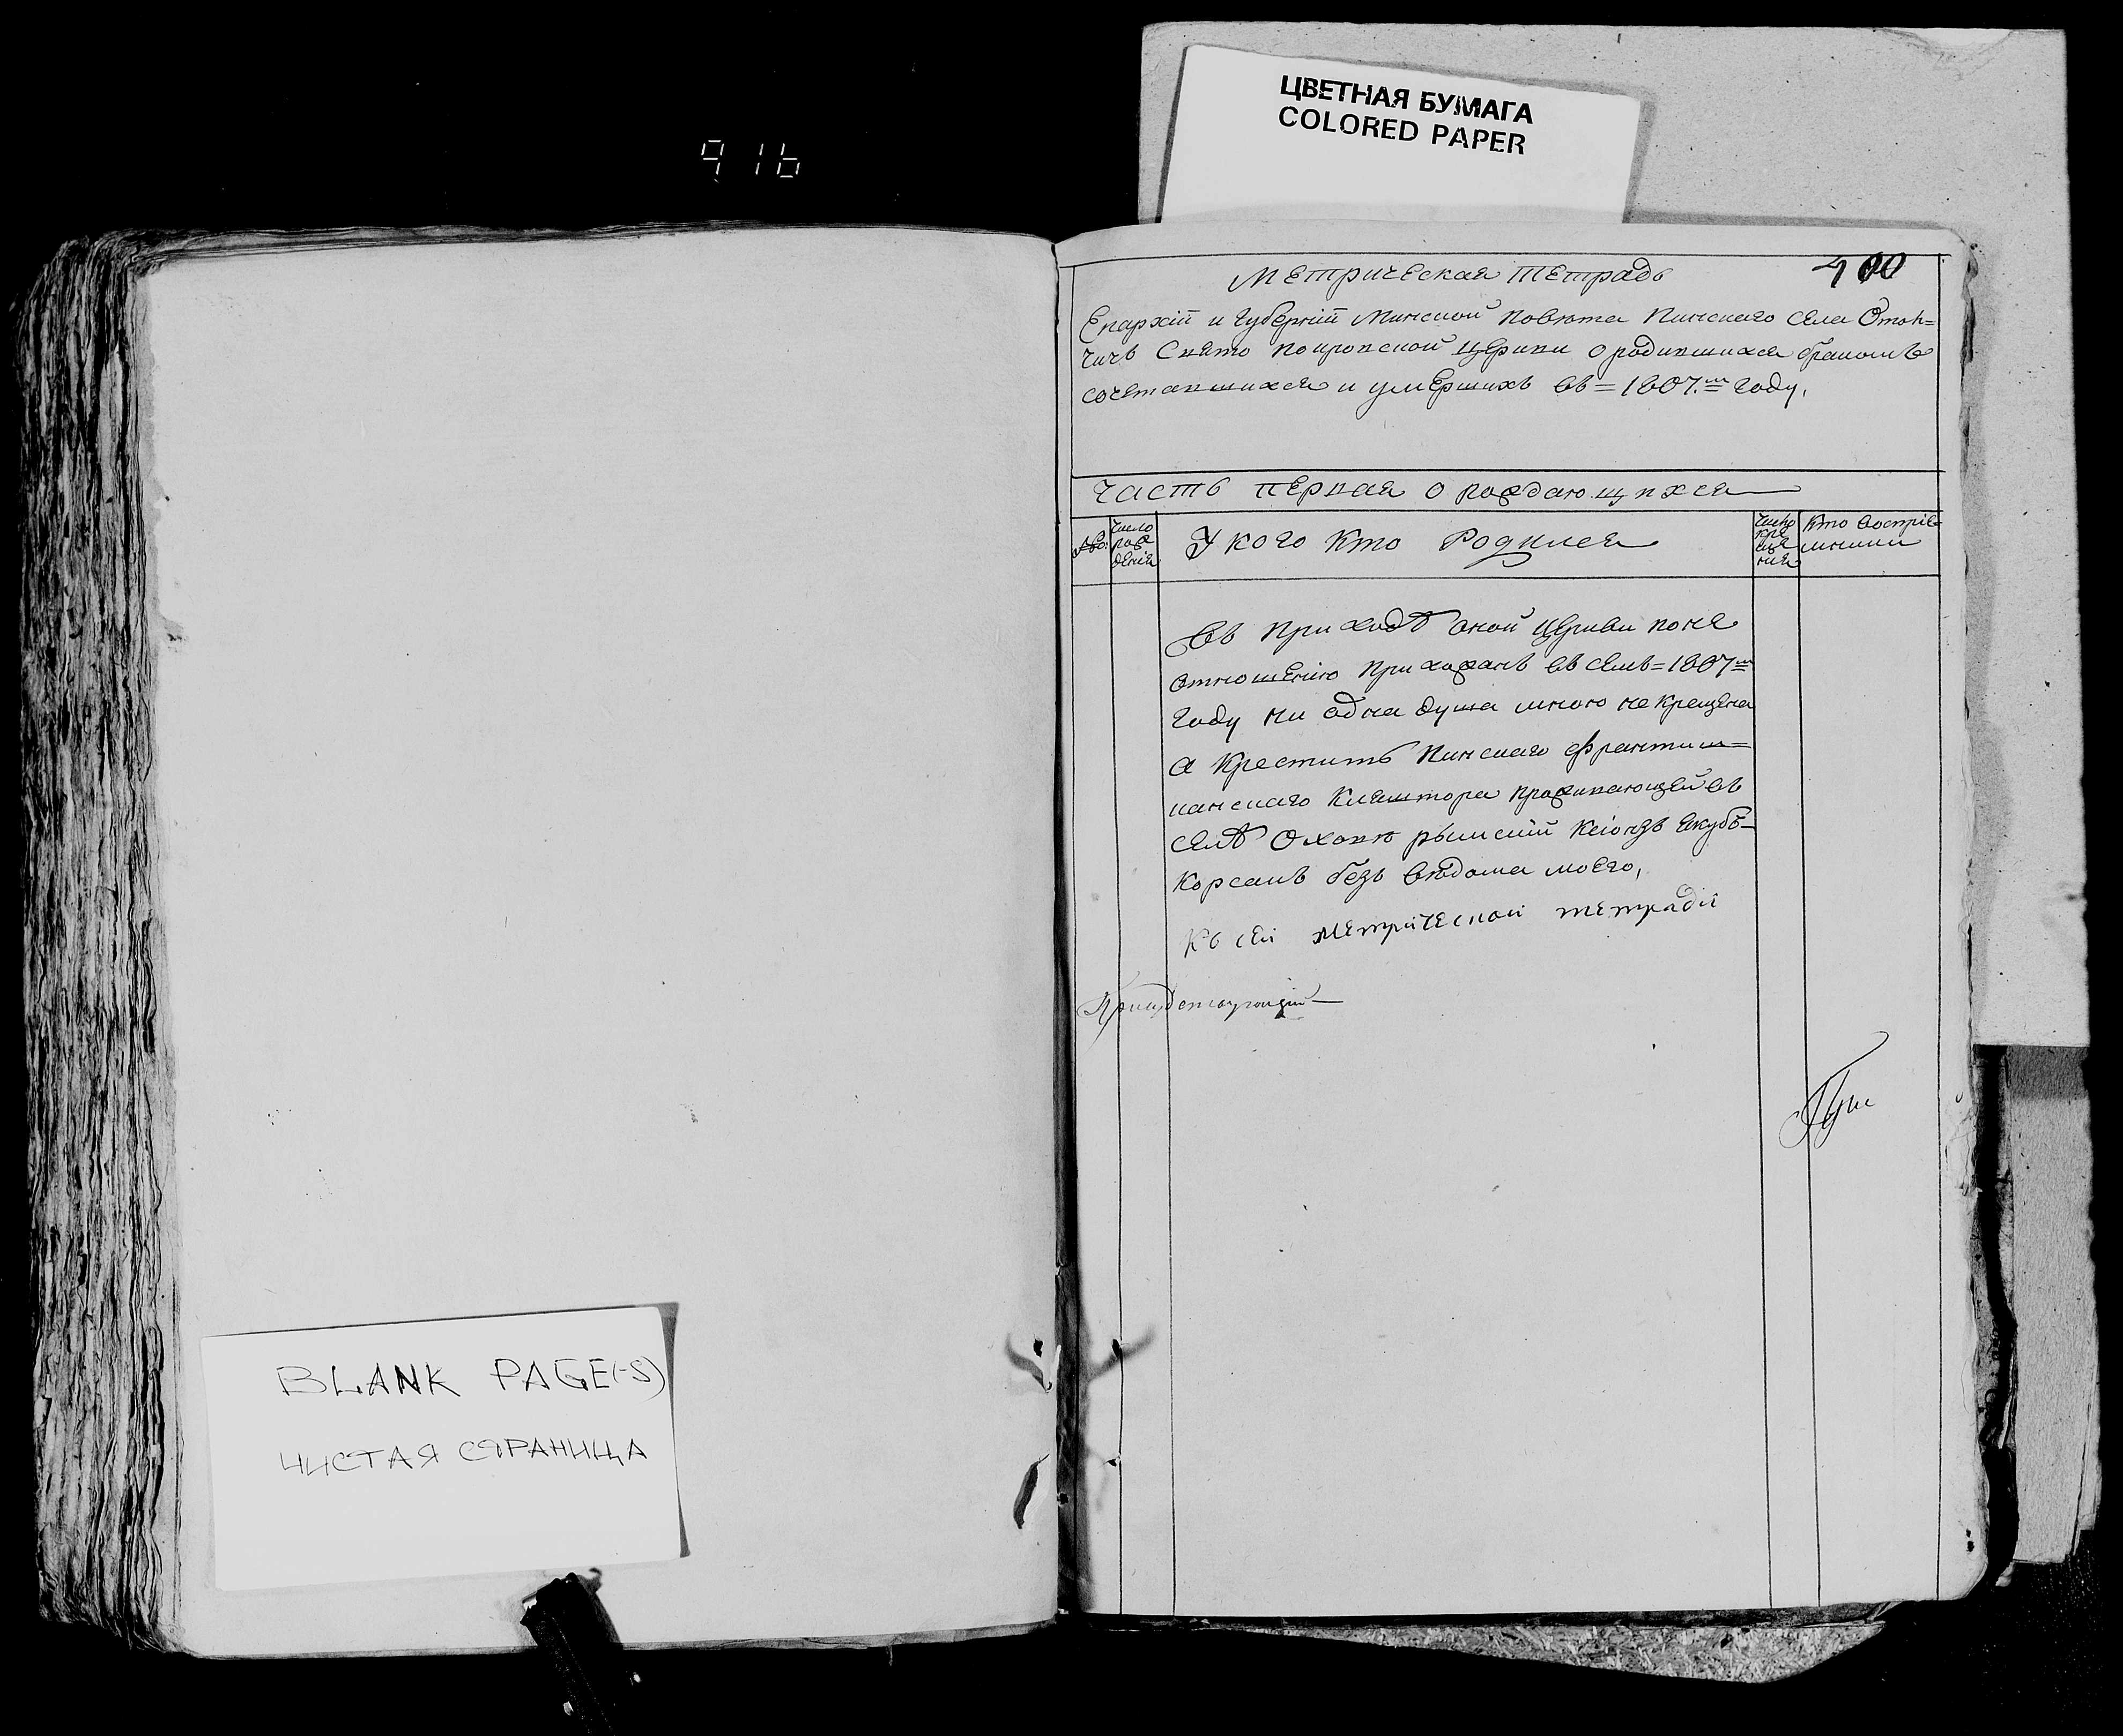 ЦВЕТНАЯ БУМАГА
COLORED PAPER
916
400
Метрическая тетрадь
Епархіи и губерніи Минской повѣта Пинскаго села Отол=
чичь Свято покровской церкви о родившихся бракомъ
сочетавшихся и умершихъ въ=1807.м году,
Часть первая о рождающихся
№
Число рождения
У кого кто родился
Число крещения
Кто воспріемники
Въ приходѣ оной церкви по не
отношенію прихожанъ въ семъ=1807м
году ни одна душа мною не крещена
а крестить Пинскаго Франтиш=
канскаго кляштора проживающей въ
селѣ Оховѣ рымскій ксіондзъ Якубъ
Корсакъ безъ вѣдома моего,
Къ сей метрической тетради
BLANK PAGE(-S)
ЧИСТАЯ СТРАНИЦА